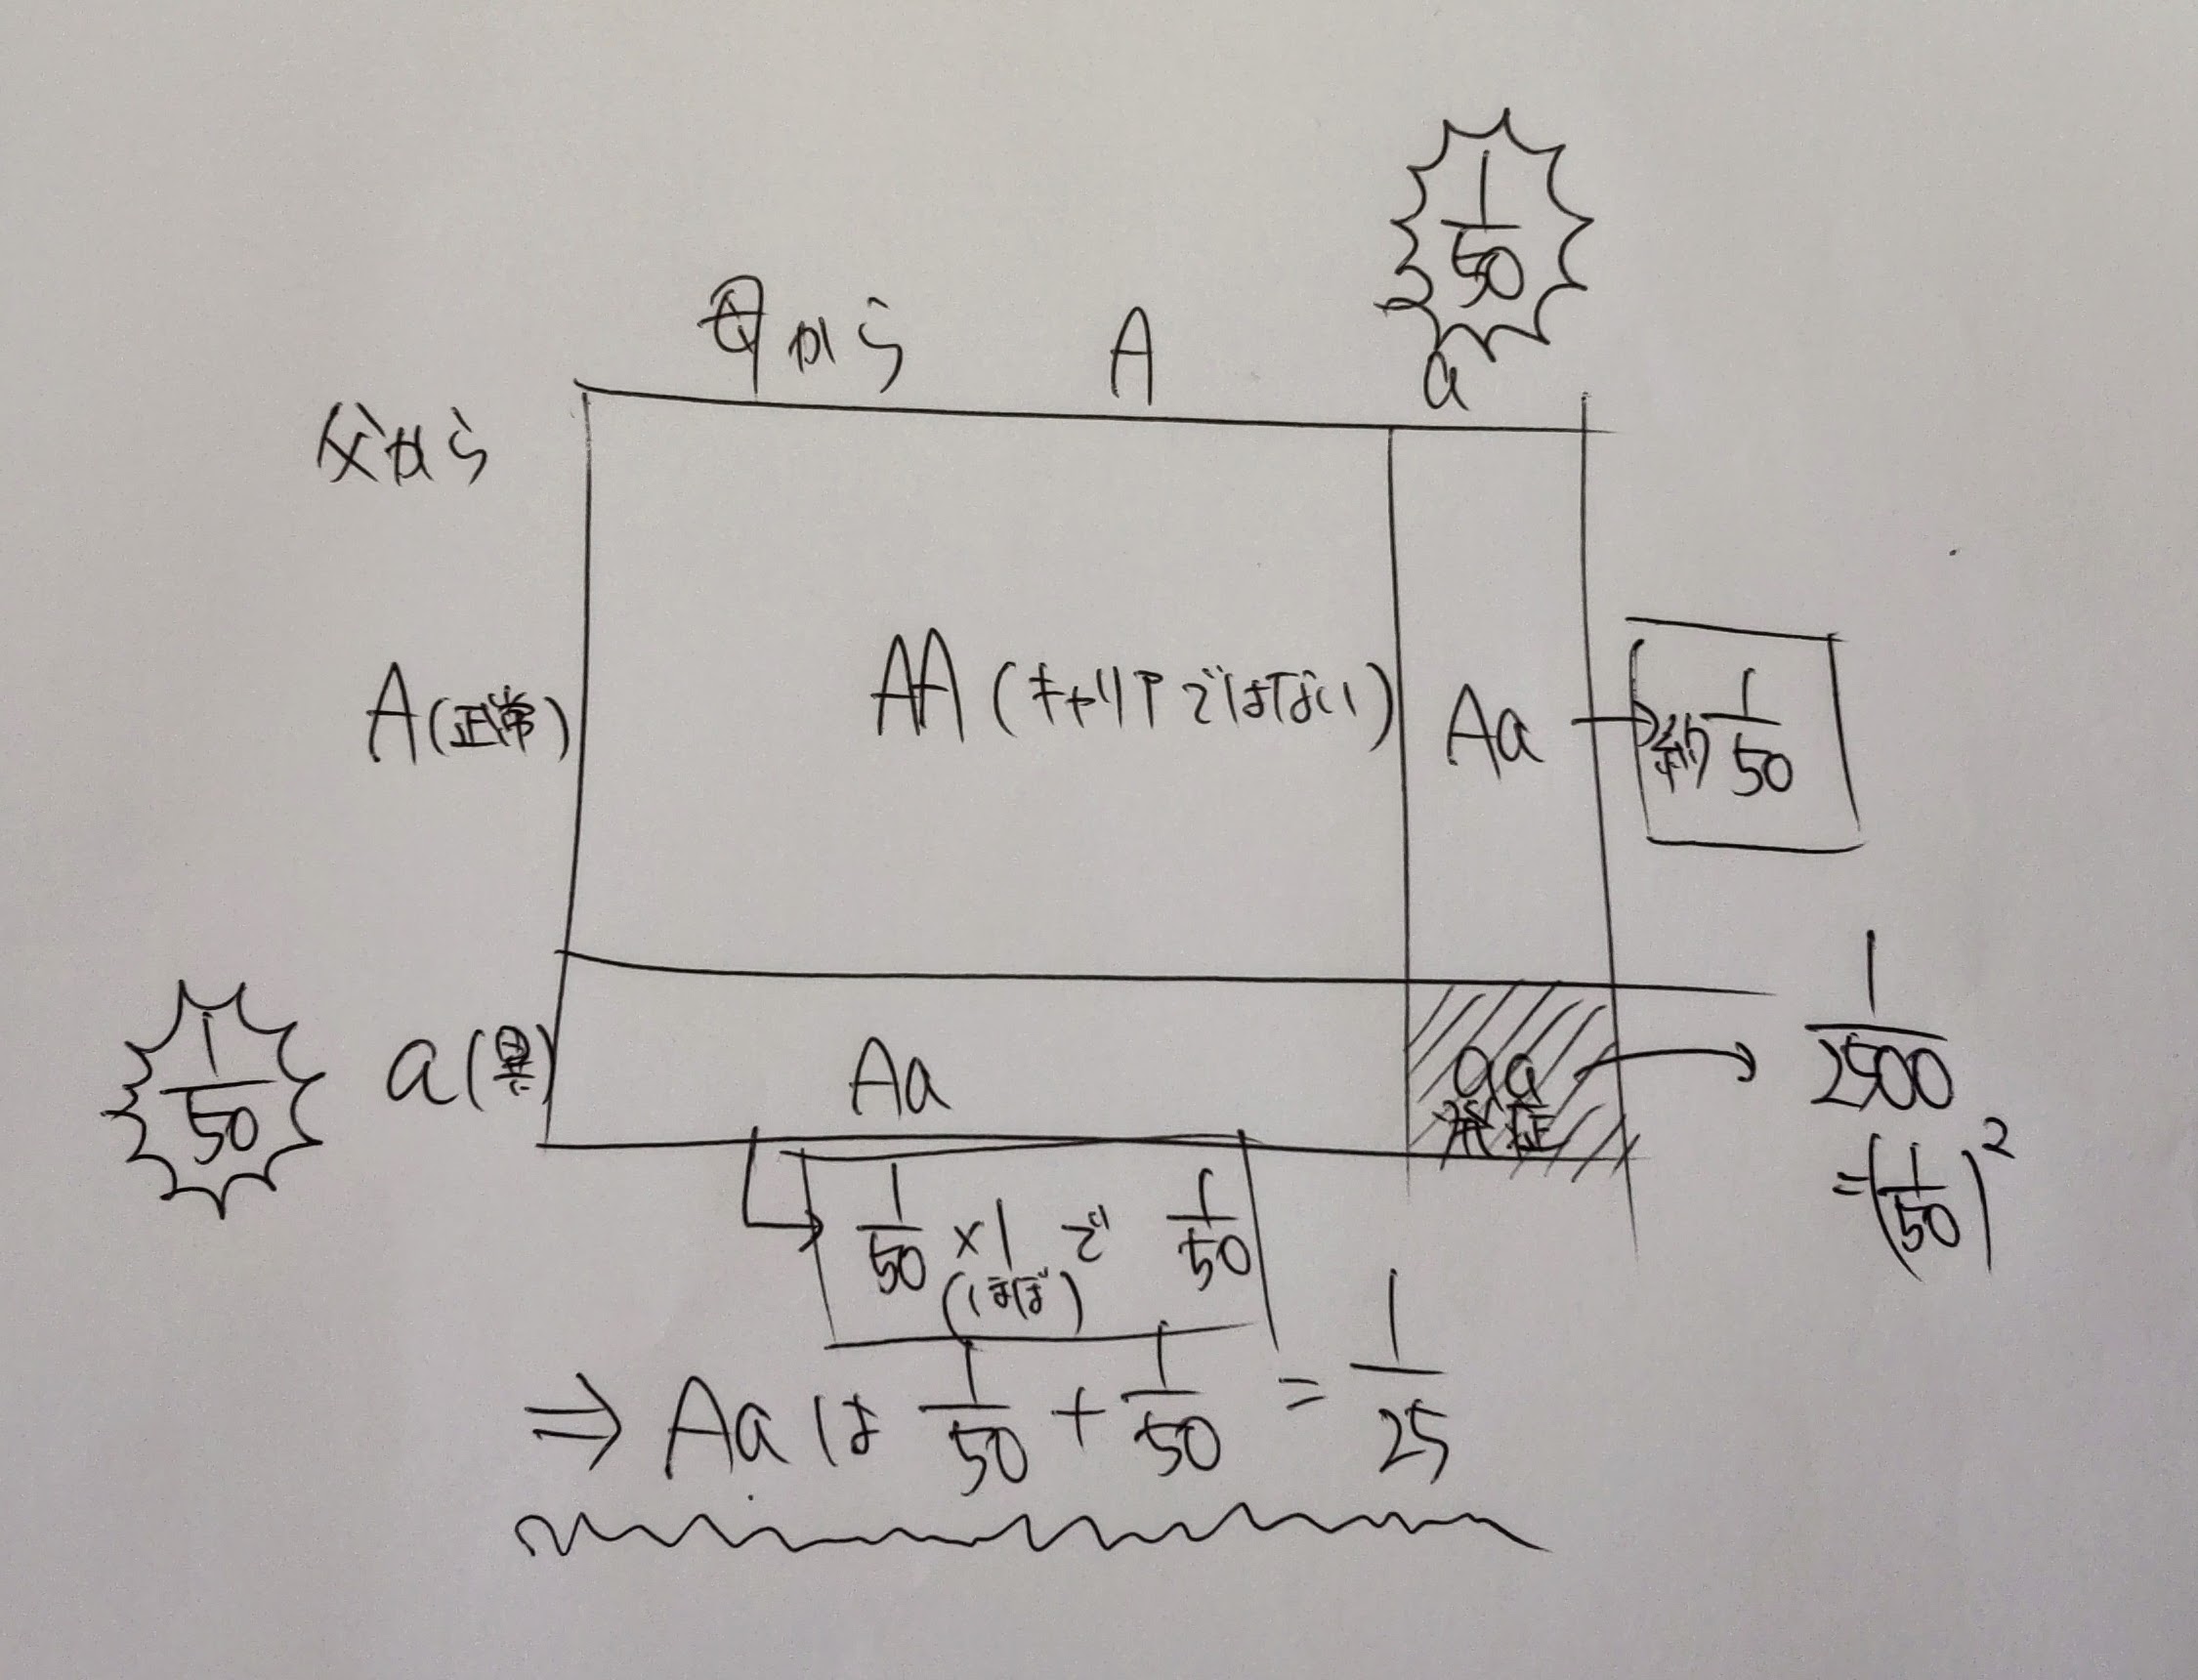 1/50
母から A a
父から
A(正常) AA(キャリアではない) Aa → 約1/50
1/50 a(異) Aa aa 発症 → 1/2500
=(1/50)²
1/50 × 1 で 1/50
(ほぼ)
⇒ Aa は 1/50 + 1/50 = 1/25